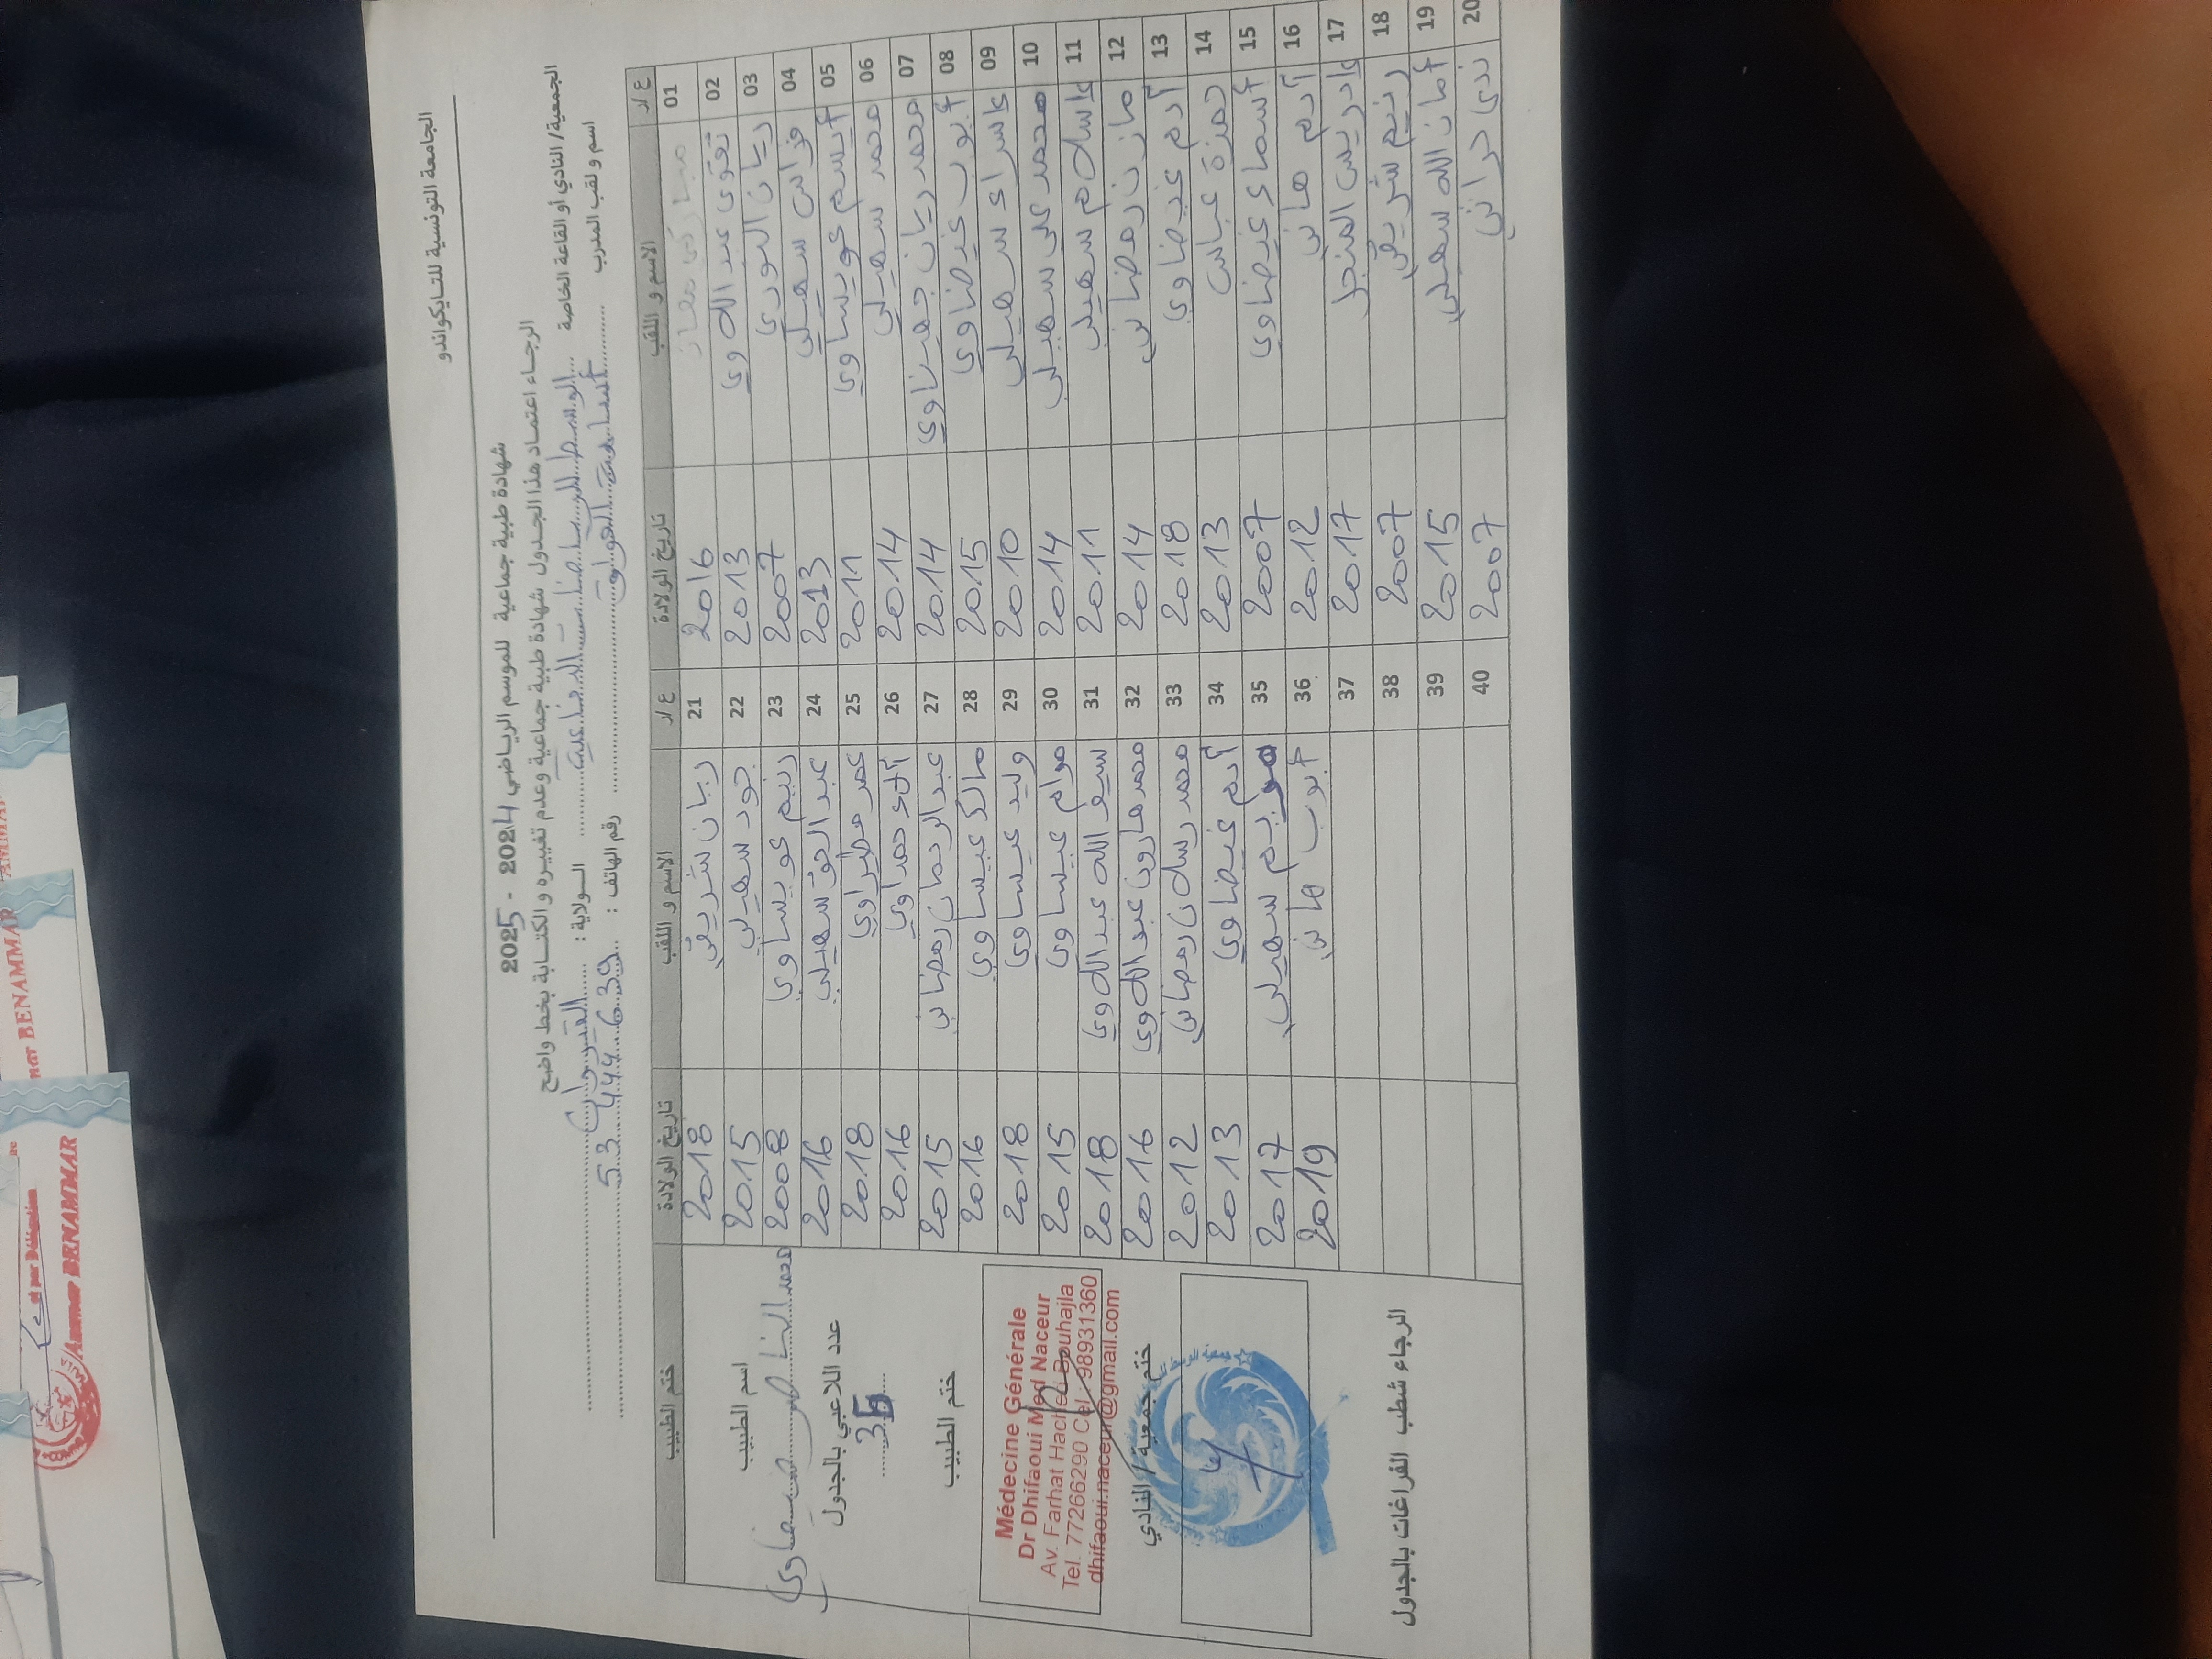 الجامعة التونسية للتايكواندو
شهادة طبية جماعية للموسم الرياضي 2024 - 2025
الرجاء اعتماد هذا الجدول شهادة طبية جماعية وعدم تغييره والكتابة بخط واضح
الجمعية/ النادي أو القاعة الخاصة الولاية : القيروان
اسم و لقب المدرب أسامة رقم الهاتف : 53 444 639
ع/ر الاسم و اللقب تاريخ الولادة ع/ر الاسم و اللقب تاريخ الولادة ختم الطبيب
01 معاز 2016 21 ريان شريفي 2018
02 تقوى عبداللاوي 2013 22 جود سهيلي 2015
03 ريان النوري 2007 23 رنيم عويساوي 2008
04 فراس سهيلي 2013 24 عبد الحق سهيلي 2016
05 أيسم عويساوي 2011 25 عمر مطيراوي 2018
06 محمد سهيلي 2014 26 آلاء حمداوي 2016
07 محمد ريان جهيناوي 2014 27 عبد الرحمان رمضاني 2015
08 أيوب غيضاوي 2015 28 مالك عيساوي 2016
09 إسراء سهيلي 2010 29 وليد عيساوي 2018
10 محمد علي سهيلي 2014 30 مرام عيساوي 2015
11 إسلام سهيلي 2011 31 سيف الله عبداللاوي 2018
12 مازن رمضاني 2014 32 محمد هارون عبداللاوي 2016
13 آدم غيضاوي 2018 33 محمد رسلان رمضاني 2012
14 حمزة عباس 2013 34 آدم غيضاوي 2013
15 أسماء غيضاوي 2007 35 سهيلي 2017
16 آدم هاني 2012 36 أيوب هاني 2019
17 إدريس المنجل 2017 37
18 رنيم شريفي 2007 38
19 أمان الله سهيلي 2015 39
20 ندى حراني 2007 40
اسم الطبيب
محمد الناصر ضيفاوي
عدد اللاعبي بالجدول
ختم الطبيب
Médecine Générale
Dr Dhifaoui Med Naceur
Av. Farhat Hached Bouhajla
Tel. 77266290 Cel. 98931360
dhifaoui.naceur@gmail.com
ختم جمعية / النادي
الرجاء شطب الفراغات بالجدول
par Délégation
Ammar BENAMMAR
BENAMMAR